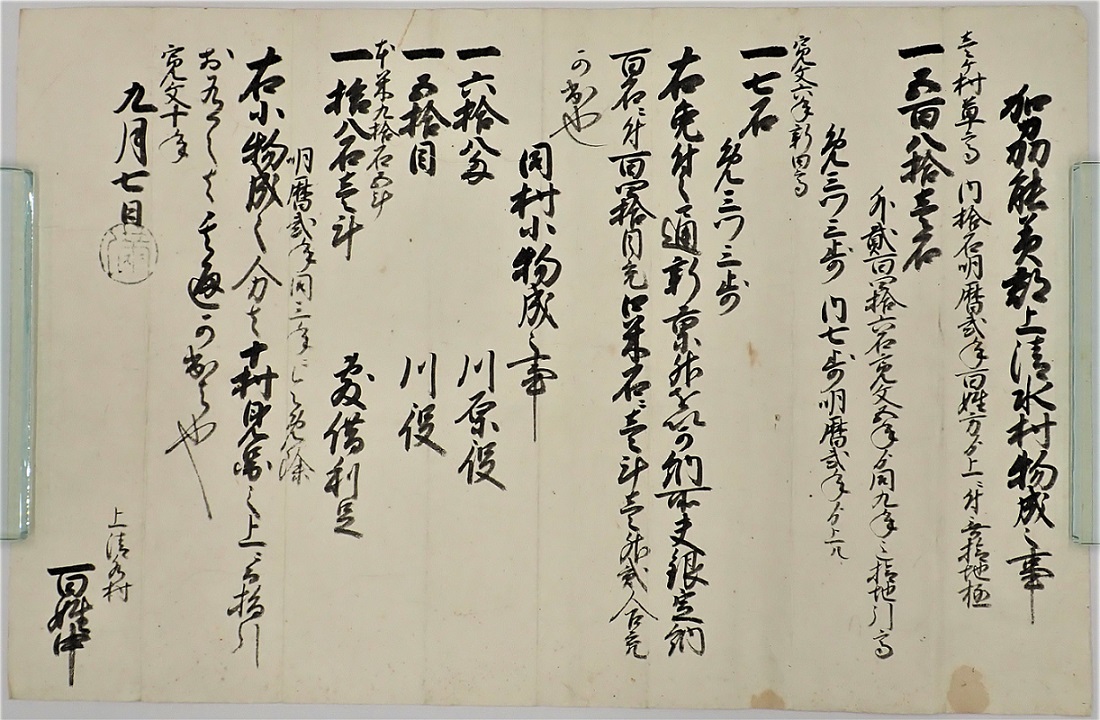 加州能美郡上清水村物成之事
壱ヶ村草高 内拾石明暦弐年百姓方ゟ上ニ付無検地極
一五百八拾壱石
外弐百四拾六石寛文五年ゟ同九年之検地引高
免三ツ三歩 内七歩明暦弐年ゟ上ル
寛文六年新田高
一七石
免三ツ三歩
右免付之通新京升を以可納所夫銀定納
百石ニ付百四拾目充口米石ニ壱斗壱升弐合充
可出也
同村小物成之事
一六拾八匁 川原役
一五拾目 川役
本米九拾石五斗
一拾八石壱斗 敷借利足
明暦弐年同三年ニ令免除
右小物成之分者十村見図之上ニ而指引
於有之者其通可出者也
寛文十年
九月七日
上清水村
百姓中